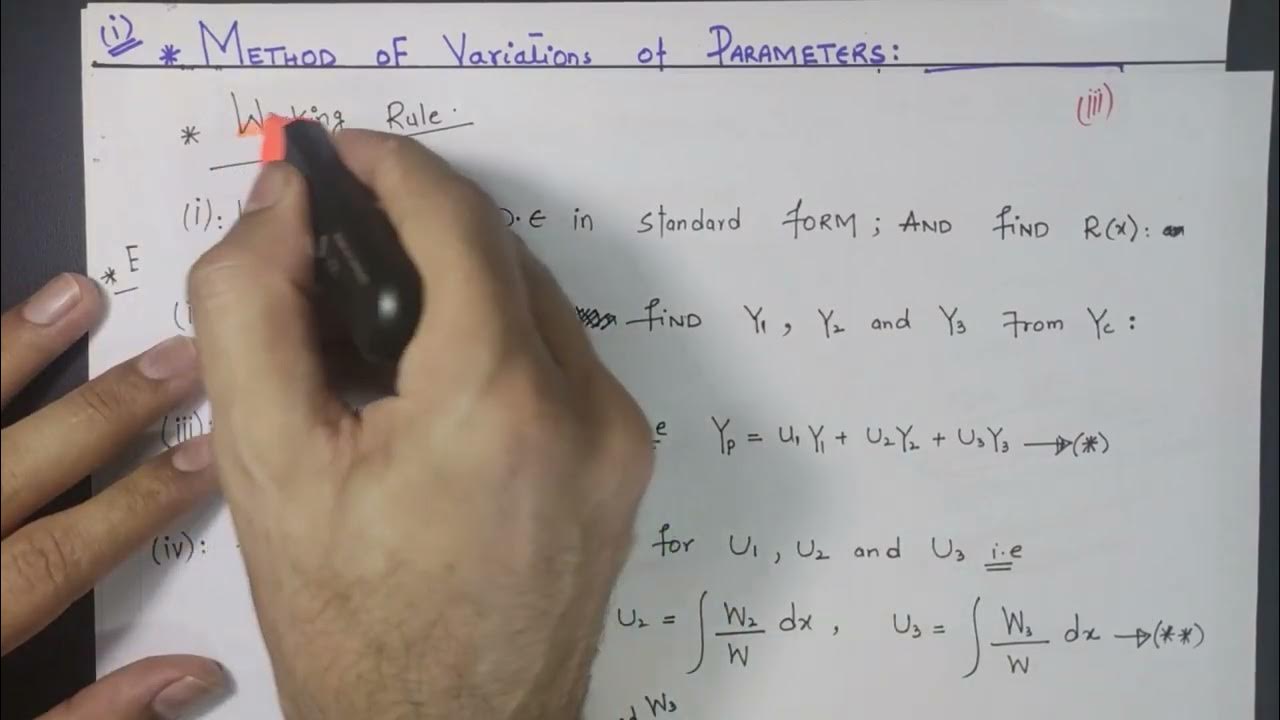 (i) * METHOD OF Variations of PARAMETERS:
(iii)
* Working Rule.
(i): D.E in Standard FORM; AND FIND R(x):
* E
FIND Y₁, Y₂ and Y₃ From Yc:
(iii): Yp = U₁Y₁ + U₂Y₂ + U₃Y₃ → (*)
(iv): for U₁, U₂ and U₃ i.e
U₂ = ∫ W₂/W dx, U₃ = ∫ W₃/W dx → (**)
W₃